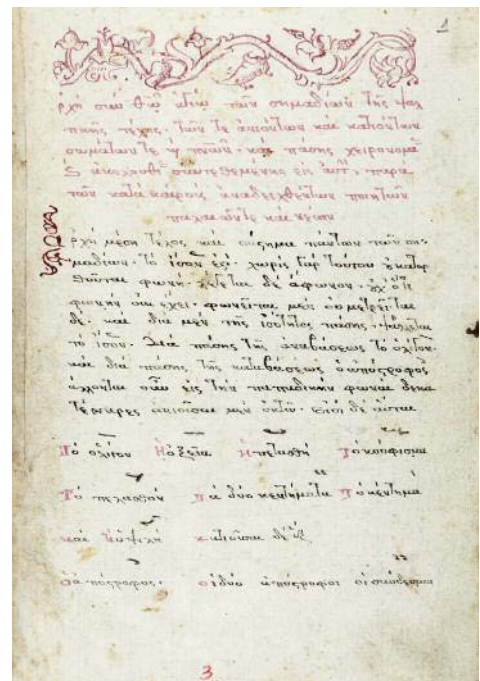 1
ρχὴ σὺν Θῷ ἁγίῳ τῶν σημαδίων τῆς ψαλ
τικῆς τέχνης, τῶν τε ἀνιόντων καὶ κατιόντων
σωμάτων τε καὶ πνῶν· καὶ πάσης χειρονομί
συντεθειμένης εἰς αὐτ παρὰ
τῶν κατὰ καιροὺς ἀναδειχθέντων ποιητῶν
παλαιῶν τε καὶ νέων
ρχὴ μέση τέλος καὶ σύστημα πάντων τῶν ση
μαδίων· τὸ ἴσον ἐστί· χωρὶς γὰρ τούτου οὐ κατορ
θοῦται φωνή· λέγεται δὲ ἄφωνον· οὐχ ὅτι
φωνὴν οὐκ ἔχει· φωνεῖται μὲν οὐ μετρεῖται
δέ· καὶ διὰ μὲν τῆς ἰσότητος πάσης ψάλλεται
τὸ ἴσον· διὰ πάσης τῆς ἀναβάσεως τὸ ὀλίγον·
καὶ διὰ πάσης τῆς καταβάσεως ὁ ἀπόστροφος
οὖν εἰς τὴν παπαδικὴν φωναὶ δεκα
τέσσαρες ἀνιοῦσαι μὲν ὀκτώ· εἰσὶ δὲ αὗται
Τὸ ὀλίγον Ἡ ὀξεῖα Ἡ πεταστὴ Τὸ κούφισμα
Τὸ πελασθὸν Τὰ δύο κεντήματα Τὸ κέντημα
καὶ Ἡ ὑψιλή κατιοῦσαι δὲ ἕξ
Ὁ ἀπόστροφος· οἱ δύο ἀπόστροφοι οἱ σύνδεσμοι
3